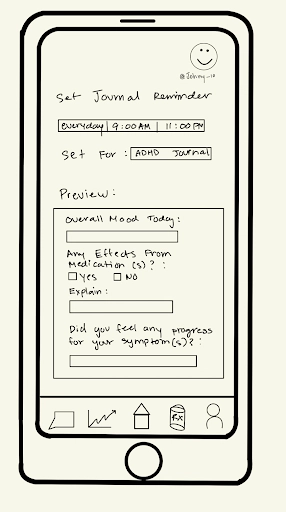 @Johnny_10
Set Journal Reminder
everyday | 9:00 AM | 11:00 PM
Set For : ADHD Journal
Preview :
Overall Mood Today :
Any Effects From
Medication (s)? :
Yes No
Explain :
Did you feel any progress
for your symptom(s)? :
Rx